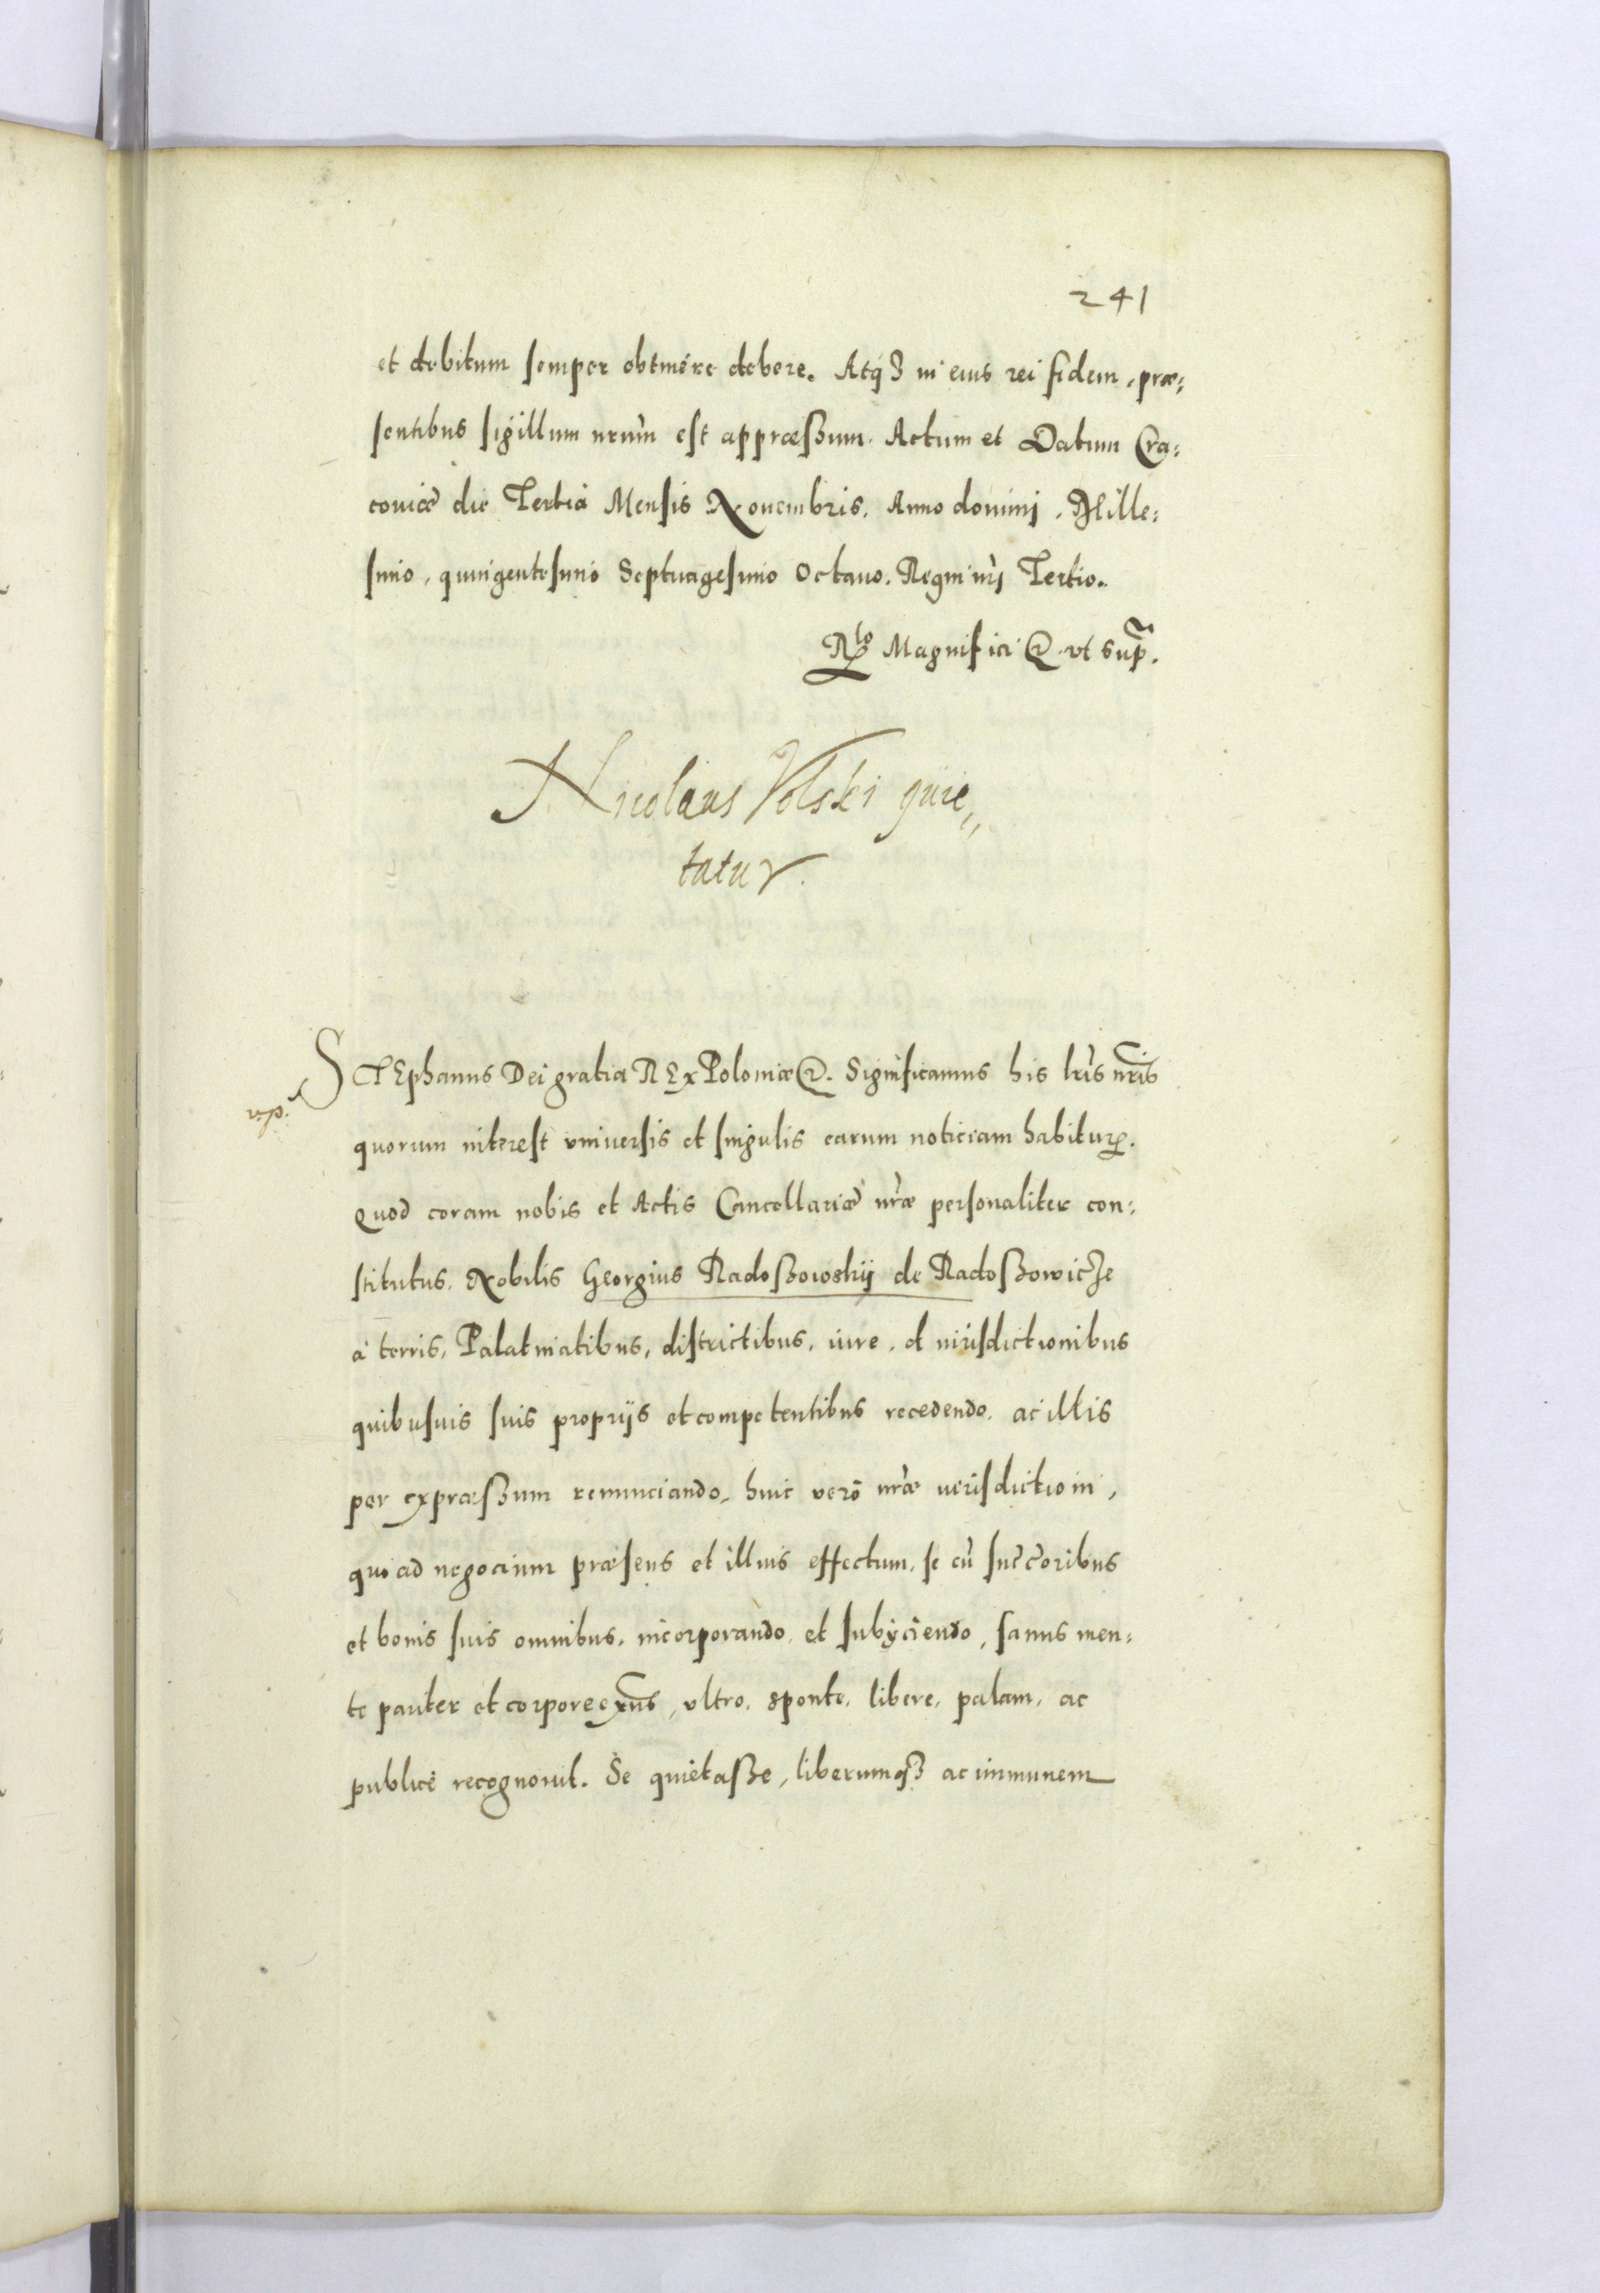 241
et debitum semper obtinere debere. Atq3 in eius rei fidem, præ:
sentibus sigillum nrum est appræssum. Actum et Datum Cra:
coviæ die Tertia Mensis Novembris. Anno domini, Mille:
simo, quingentesimo Septuagesimo Octavo. Regni nri Tertio.
Rlo Magnifici &. vt sup.
Nicolaus Volski quie„
tatur.
STEphanus Dei gratia REx Poloniæ &. Significamus his lris nris
quorum interest vniversis et singulis earum noticiam habitur.
Quod coram nobis et Actis Cancellariæ nræ personaliter con:
stitutus. Nobilis Georgius Radoszowskij de Radoszowicze
à terris, Palatinatibus, districtibus, iure, et iurisdictionibus
quibusvis suis proprijs et competentibus recedendo, ac illis
per expræssum renunciando, huic verò nræ iurisdictioni,
quo ad negocium præsens et illius effectum, se cu succoribus
et bonis suis omnibus, incorporando, et subyciendo, sanus men:
te pariter et corpore exns, vltro, sponte, libere, palam, ac
publicè recognovit. Se quietasse, liberumq3 ac immunem